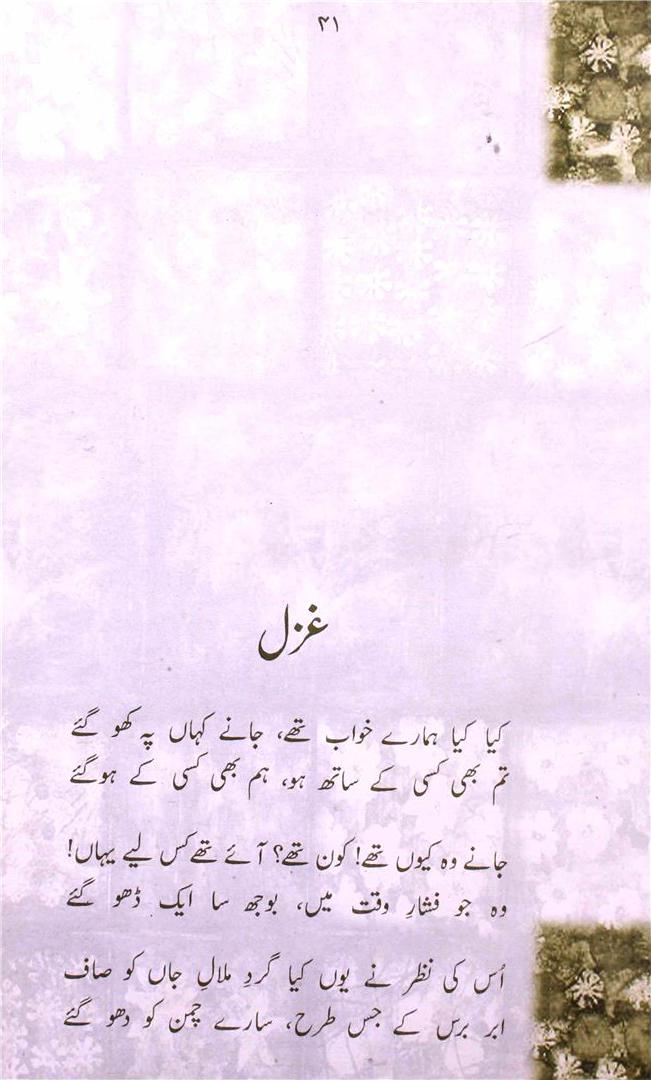 ۴۱
غزل
کیا کیا ہمارے خواب تھے، جانے کہاں پہ کھو گئے
تم بھی کسی کے ساتھ ہو، ہم بھی کسی کے ہوگئے
جانے وہ کیوں تھے! کون تھے؟ آئے تھے کس لیے یہاں!
وہ جو فشارِ وقت میں، بوجھ سا ایک ڈھو گئے
اُس کی نظر نے یوں کیا گردِ ملالِ جاں کو صاف
ابر برس کے جس طرح، سارے چمن کو دھو گئے